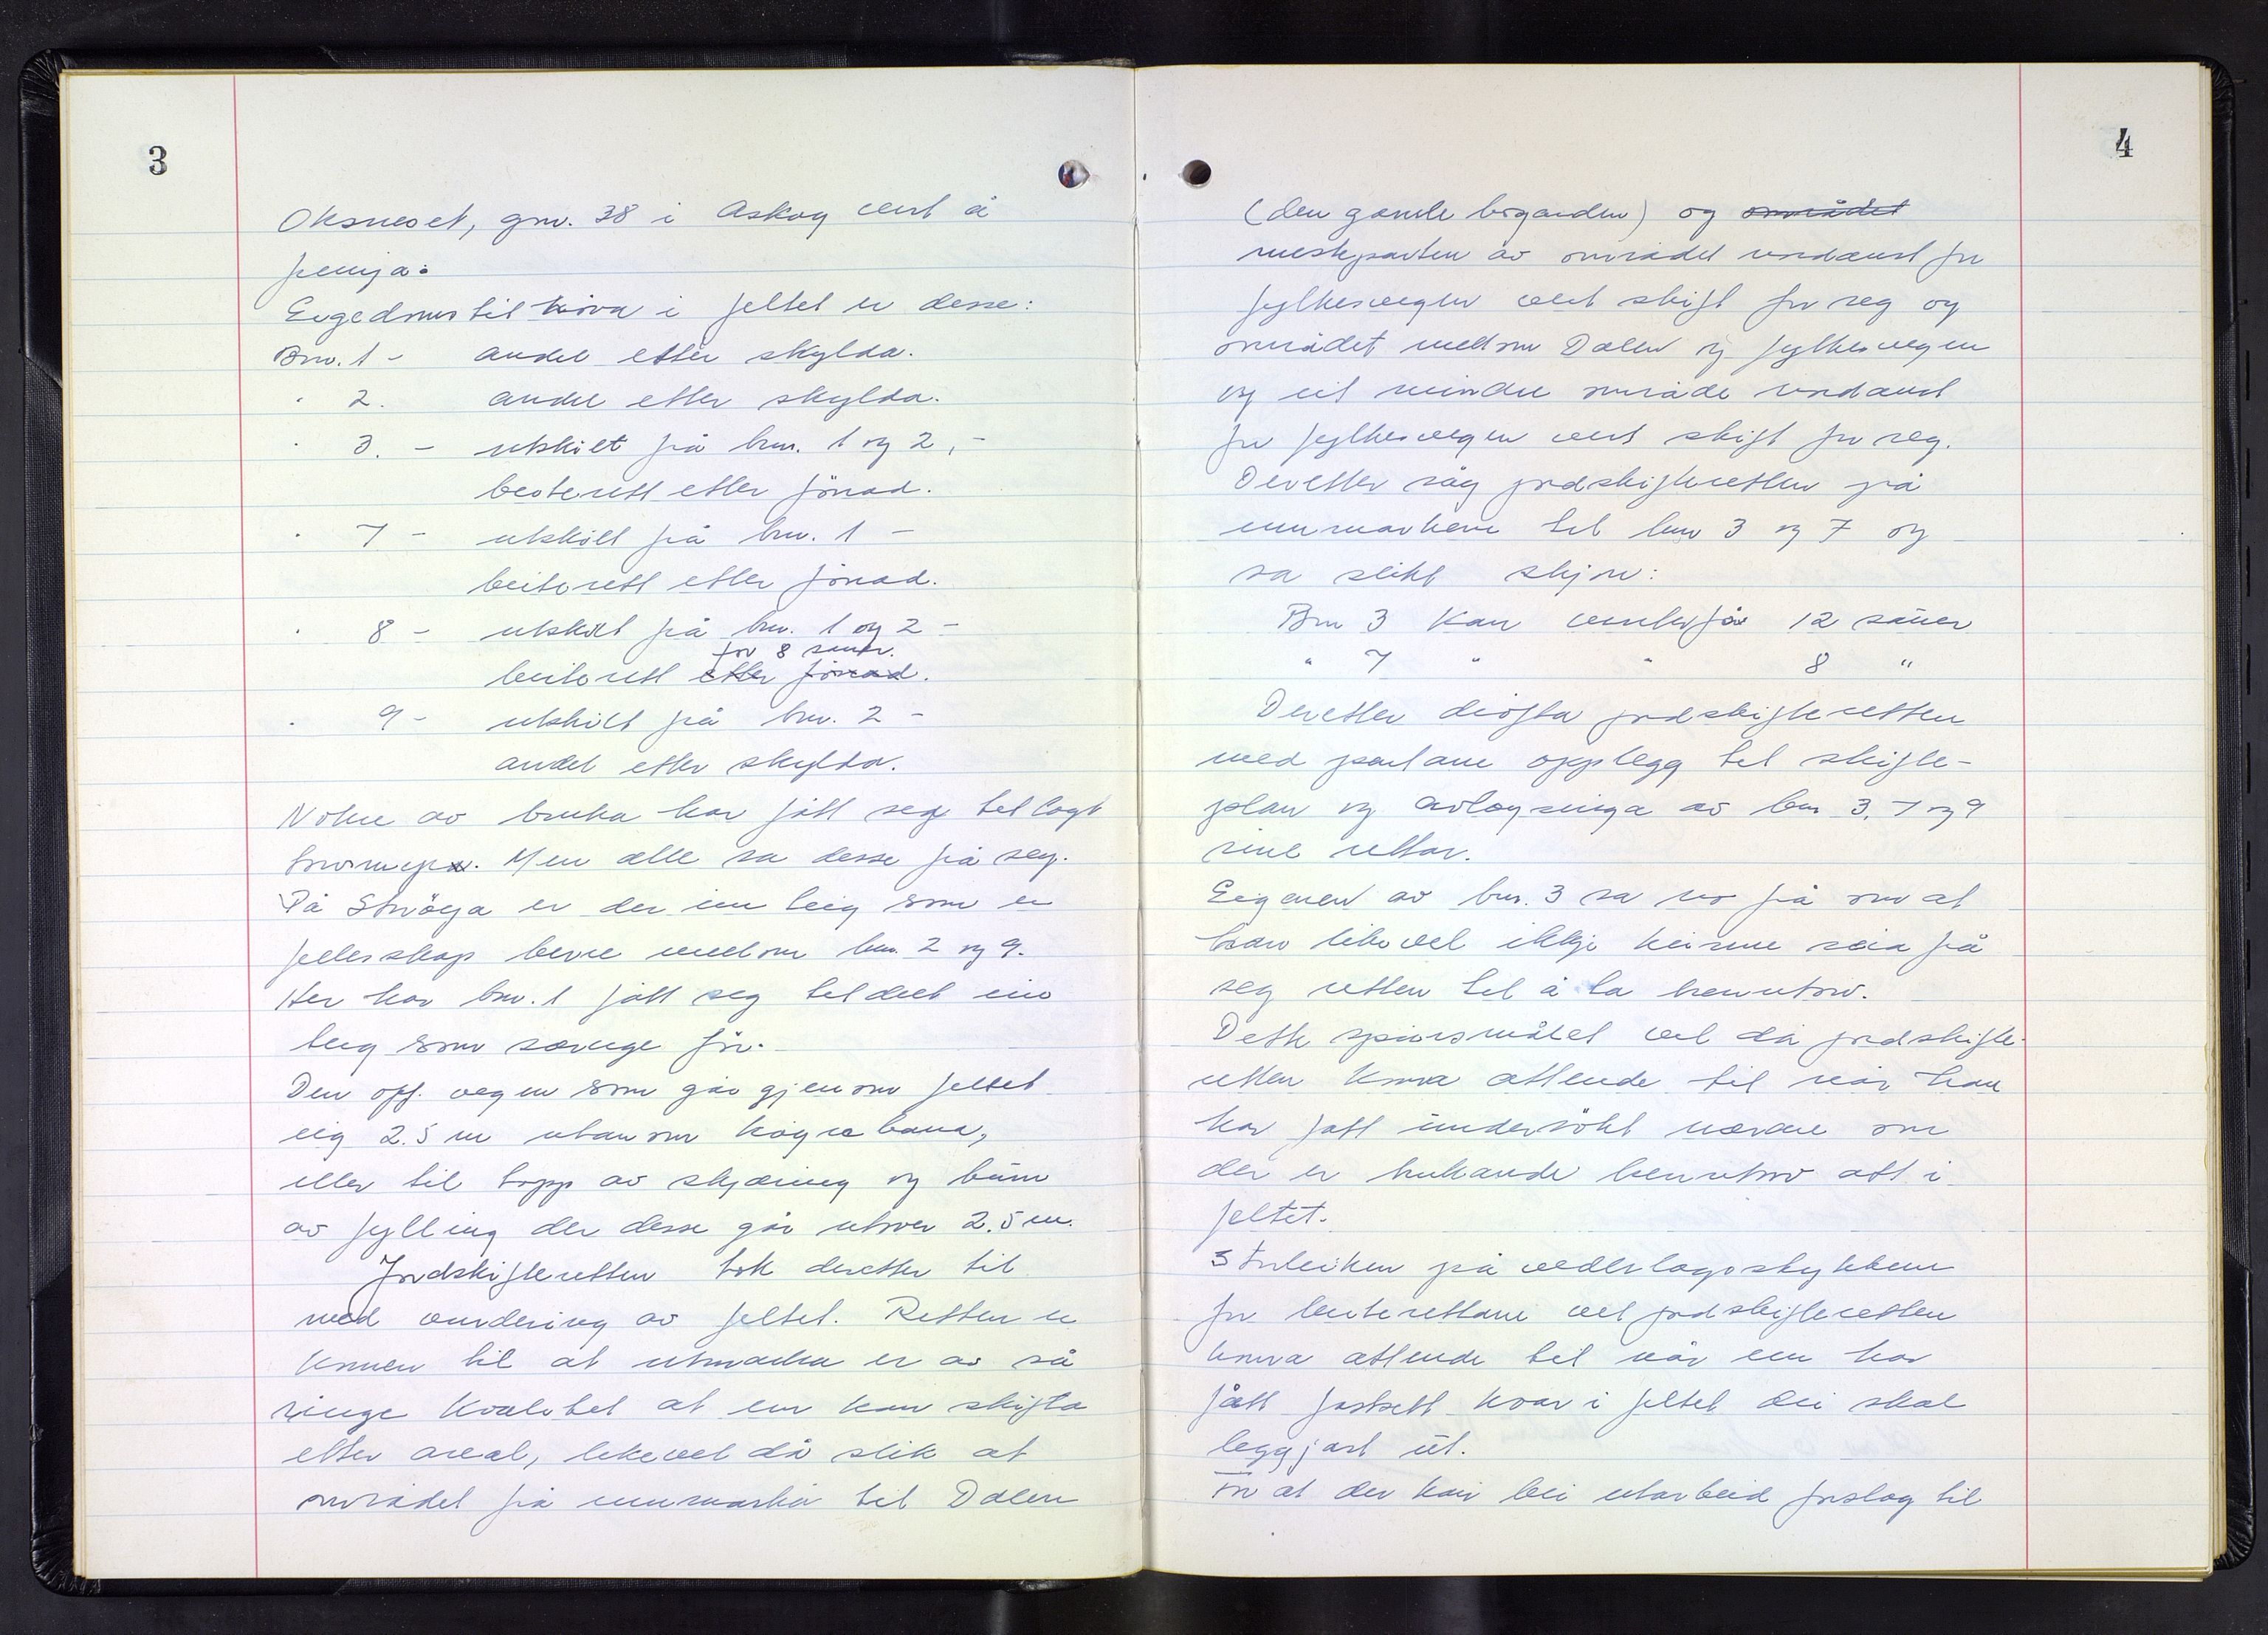 3
Oksneset, gnr. 38 i Askøy vert å
semja.
Eigedomstilhöva i feltet er desse:
Bnr. 1 - andel etter skylda.
" 2. andel etter skylda.
" 3. - utskilt frå bnr. 1 og 2, -
beiterett etter fönad.
" 7 - utskilt frå bnr. 1 -
beiterett etter fönad.
" 8 - utskilt frå bnr. 1 og 2 -
for 8 sauer.
beiterett etter fönad.
" 9 - utskilt frå bnr. 2 -
andel etter skylda.
Nokre av bruka har fått seg tillagt
torvmyr. Men alle sa desse frå seg.
På Ströya er der ein teig som er
fellesskap berre mellom bnr. 2 og 9.
Her har bnr. 1 fått seg tildelt ein
teig som særeige för.
Den off. vegen som går gjenom feltet
eig 2.5 m utanom køyrebana,
eller til topp av skjæring og bunn
av fylling der desse går utover 2.5 m.
Jordskifteretten tok deretter til
med vurdering av feltet. Retten er
komen til at utmarka er av så
ringe kvalitet at ein kan skifta
etter areal, likevel då slik at
området frå innmarka til Dalen
4
(den gamle bögarden) og området
mesteparten av området nordaust for
fylkesvegen vert skift for seg og
området mellom Dalen og fylkesvegen
og eit mindre område nordaust
for fylkesvegen vert skift for seg.
Deretter såg jordskifteretten på
innmarkene til bnr 3 og 7 og
sa slikt skjøn:
Bnr 3 kan vinterfø 12 sauer
" 7 " " 8 "
Deretter dröfta jordskifteretten
med partane opplegg til skifte-
plan og avløysinga av bnr 3, 7 og 9
sine rettar.
Eigaren av bnr. 3 sa no frå om at
han likevel ikkje kunne seia frå
seg retten til å ta brenntorv.
Dette spörsmålet vil då jordskifte-
retten koma attende til når han
har fått undersökt nærare om
der er brukande brenntorv att i
feltet.
Storleiken på vederlagsstykkene
for beiterettane vil jordskifteretten
koma attende til når ein har
fått fastsett kvar i feltet dei skal
leggjast ut.
For at der kan bli utarbeid forslag til